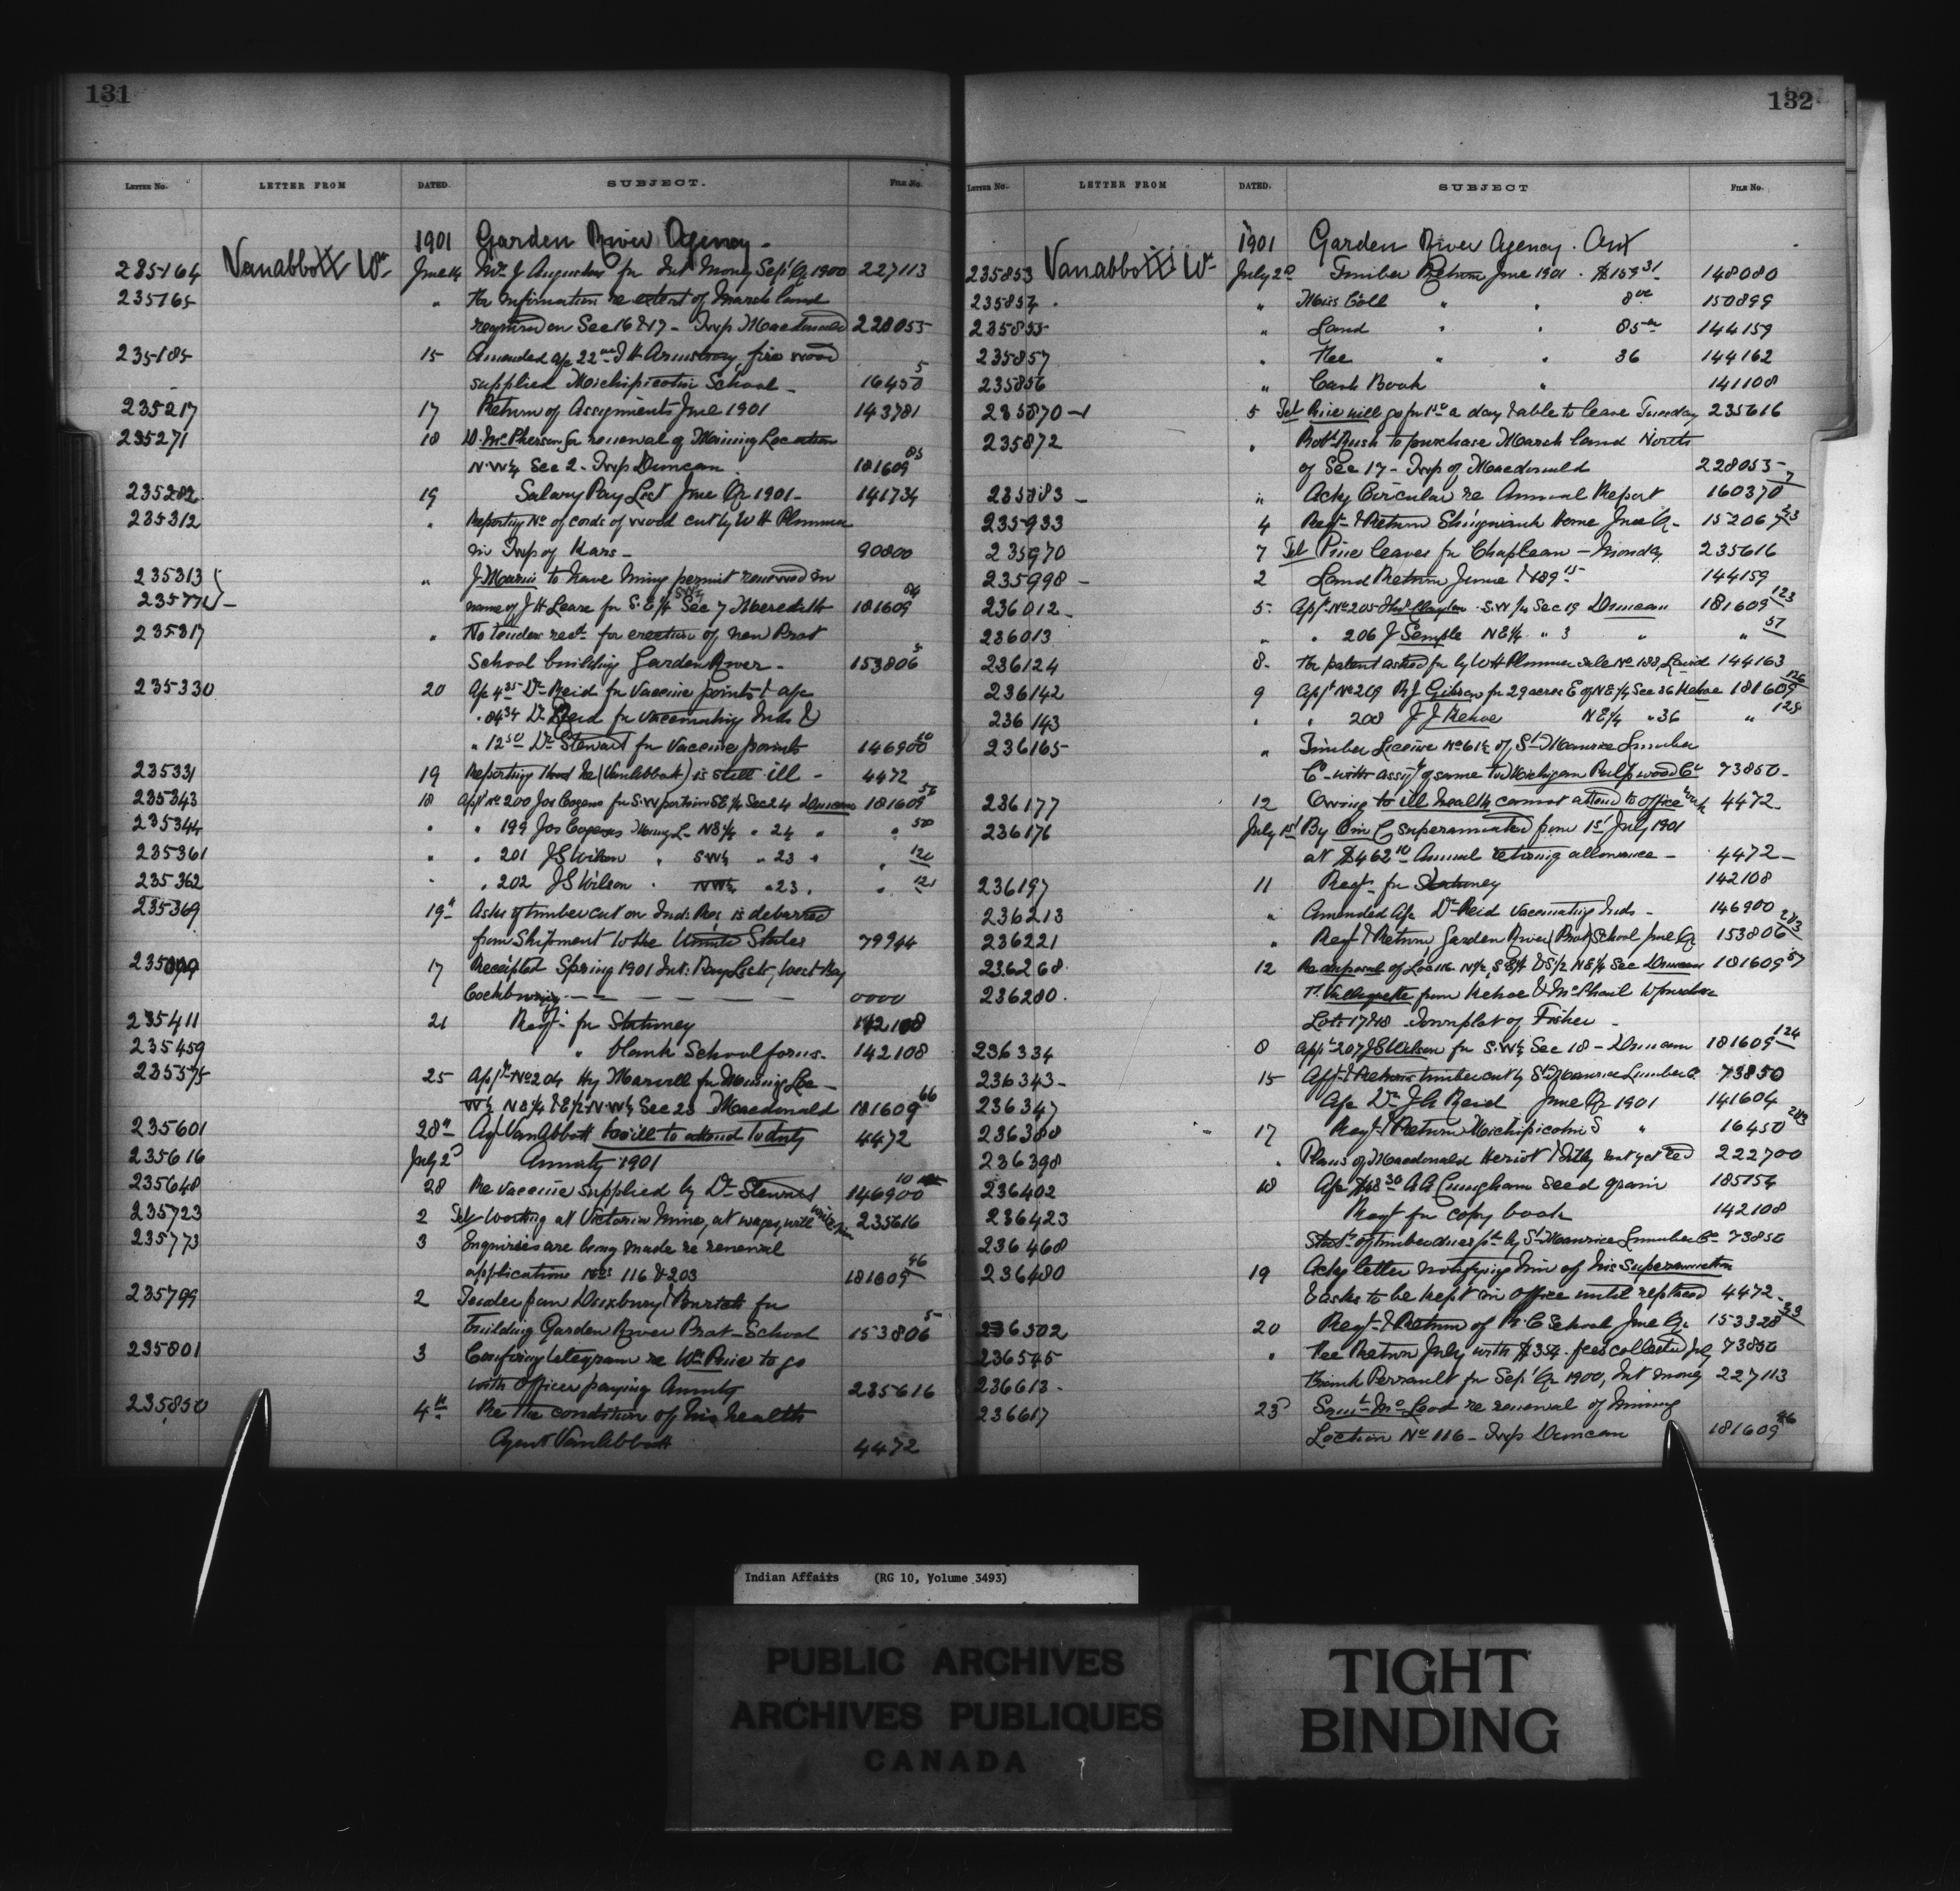 131
LETTER NO. LETTER FROM DATED. SUBJECT. FILE NO.
Vanabbott Wm 1901 Garden River Agency.
235164 June 14 Mrs J Augustus for Int Money Sept Qr 1900 227113
235165 " For information re extent of Marsh land
required on Sec 16 & 17 - Twp Macdonald 228055
235185 15 Amended a/c 22 J H Armstrong fire wood
supplied Michipicotin School - 16450 5
235217 17 Return of Assignments June 1901 143781
235271 18 D. McPherson for renewal of Mining Location
N.W¼ Sec 2 - Twp Duncan 181609 85
235282 19 Salary Pay List June Qr 1901 - 141734
235312 " Reporting No of cords of wood cut by W H Plummer
in Twp of Kars - 90800
235313 " J. Marris to have Ming permit renewed in
name of J H Leare for S.E¼ SW¼ Sec 7 Meredith 181609 84
235317 " No tenders recd for erection of new Prot
School building Garden River - 153806 5
235330 20 A/c 4 35 Dr Reid for Vaccine points & a/c
" 84 34 Dr Reid for vaccinating Inds &
" 12 50 Dr Stewart for Vaccine points 146900 10
235331 19 Reporting that he (VanAbbott) is still ill - 4472
235343 18 Appt No 200 Jos Cozens for S.W portion SE¼ Sec 24 Duncan 181609 56
235344 " " 199 Jos Cozens Mining L - NE¼ " 24 " " 58
235361 " " 201 JS Wilson " SW¼ " 23 " " 120
235362 " " 202 JS Wilson " NW¼ " 23 " " 121
235369 19th Asks if timber cut on Inds Res is debarred
from Shipment to the United States 79944
17 Receipted Spring 1901 Int: Pay List, West Bay
Cockburn 0000
235411 21 Reqn for Stationery 142108
235459 " blank School forms - 142108
235575 25 Appn No 204 Hy Marvell for Mining Loc -
W½ NE¼ & E½ N.W¼ Sec 23 Macdonald 181609 66
235601 28th Agt VanAbbott too ill to attend to duty 4472
235616 July 2d Annuity 1901
235648 28 Re vaccine supplied by Dr Stewart 146900 10
235723 2 Tel Working at Victoria Mine, at wages, will 235616
235773 3 Inquiries are being made re renewal
applications Nos 116 & 203 181609 46
235799 2 Tender from Duxbury & Burtch for
building Garden River Prot - School 153806 5
235801 3 Confirming telegram re Wm Price to go
with Officer paying Annuity 235616
235850 4th Re the condition of his health
Agent VanAbbott 4472
132
LETTER NO. LETTER FROM DATED. SUBJECT FILE NO.
Vanabbott Wm 1901 Garden River Agency. Ont
235853 July 2d Timber Return June 1901 . $159 31 148080
235854 " Misc Coll " " 8 00 150899
235855 " Land " " 85 00 144159
235857 " Fee " " 36 144162
235856 " Cash Book " 141108
235870 5 Tel Price will go for 1 50 a day & able to leave Tuesday 235616
235872 " Robt Rush to purchase Marsh land North
of Sec 17 - Twp of Macdonald 228055
235883 " Ackg Circular re Annual Report 160370 7
235933 4 Reqn & Return Shingwauk Home June Qr - 152067
235970 7 Tel Price leaves for Chapleau - Monday 235616
235998 2 Land Return June $189 15 144159
236012 5 Appn No 205 Clayton S.W¼ Sec 19 Duncan 181609 123
236013 " " 206 J Semple NE¼ " 3 " " 57
236124 8 For patent asked for by W H Plummer sale No 188, Laird 144163
236142 9 Appt No 209 R J Gibson for 29 acres E of NE¼ Sec 36 Kehoe 181609 126
236143 " " 208 J J Kehoe NE¼ " 36 " 125
236165 " Timber License No 61½ of St Maurice Lumber
Co - with assigt of same to Michigan Pulpwood Co 73850
236177 12 Owing to ill health cannot attend to office work 4472
236176 July 1st By O in C superannuated from 1st July 1901
at $462 10 Annual retiring allowance - 4472
236197 11 Reqn for Stationery 142108
236213 " Amended A/c Dr Reid Vaccinating Inds - 146900
236221 " Reqn & Return Garden River (Prot) School June Qr 153806 203
236268 12 Re disposal of Loc 116 N½, SE¼ & S½ NE¼ Sec Duncan 181609 57
236280 from Kehoe & McPhail
Lots 17 & 18 Townplot of Fisher
236334 8 Appn 207 JS Wilson for S.W¼ Sec 18 - Duncan 181609 124
236343 15 Afft & Return timber cut by St Maurice Lumber Co 73850
236347 A/c Dr J A Reid June Qr 1901 141604
236388 17 Reqn & Return Michipicotin S " 16450 203
236398 " Plans of Macdonald Heriot & not yet recd 222700
236402 18 A/c $48 30 A A Cunningham seed grain 185154
236423 Reqn for copy book 142108
236468 Statt of timber dues pd by St Maurice Lumber Co 73850
236480 19 Ackg letter notifying him of his Superannuation
& asks to be kept in Office until replaced 4472
236502 20 Reqn & Return of R. C School June Qr 153328
236545 " Fee Return July with $354. fees collected July 73850
236613 Frank Perrault for Sept Qr 1900, Int money 227113
236617 23d Saml McLeod re renewal of Mining
Loction No 116 - Twp Duncan 181609 46
Indian Affairs (RG 10, Volume 3493)
PUBLIC ARCHIVES
ARCHIVES PUBLIQUES
CANADA
TIGHT
BINDING